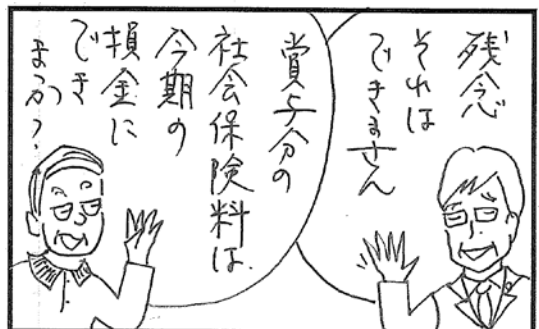 残念
それは
できません
賞与分の
社会保険料は
今期の
損金に
でき
まっか?